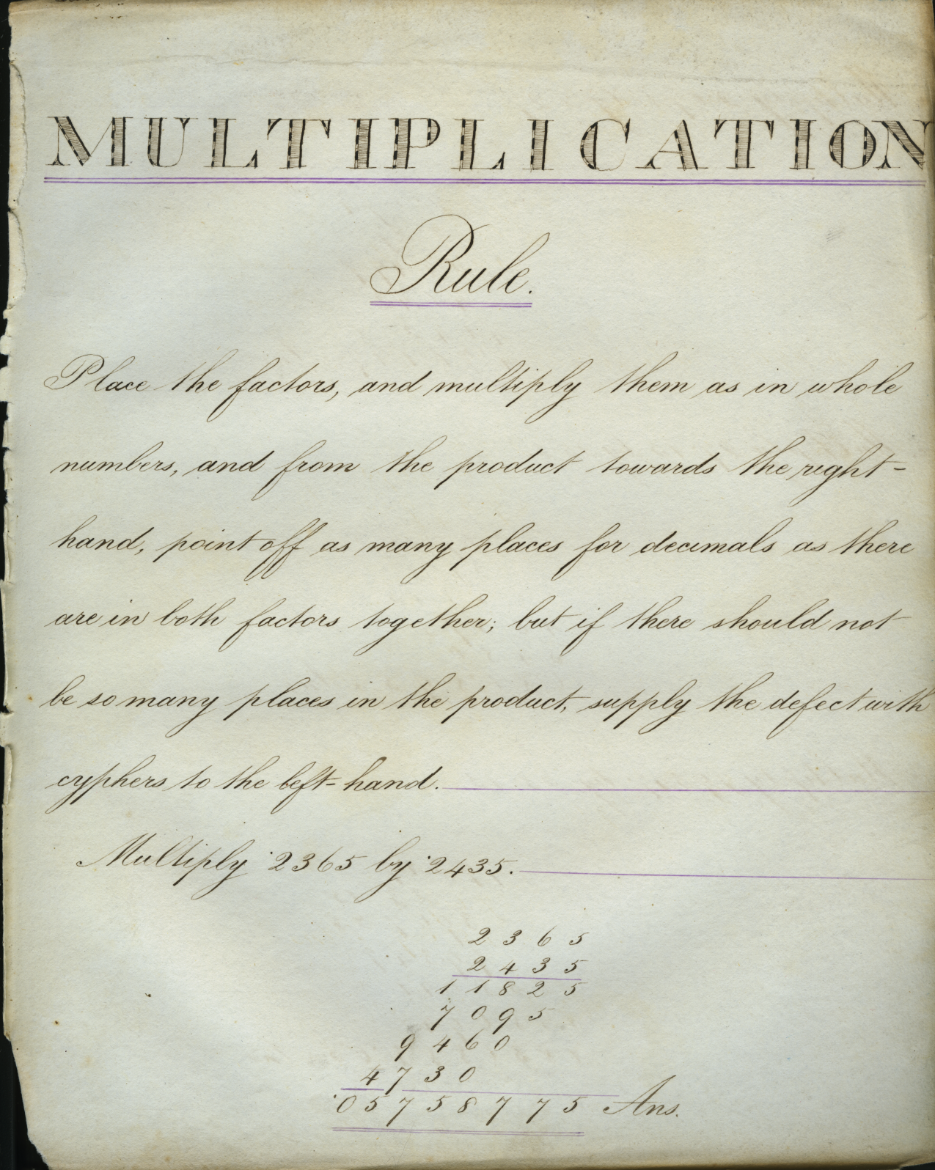 MULTIPLICATION
Rule.
Place the factors, and multiply them as in whole
numbers, and from the product towards the right-
hand, point off as many places for decimals as there
are in both factors together; but if there should not
be so many places in the product, supply the defect with
cyphers to the left-hand.
Multiply ·2365 by ·2435.
2365
2435
11825
7095
9460
4730
·05758775 Ans.